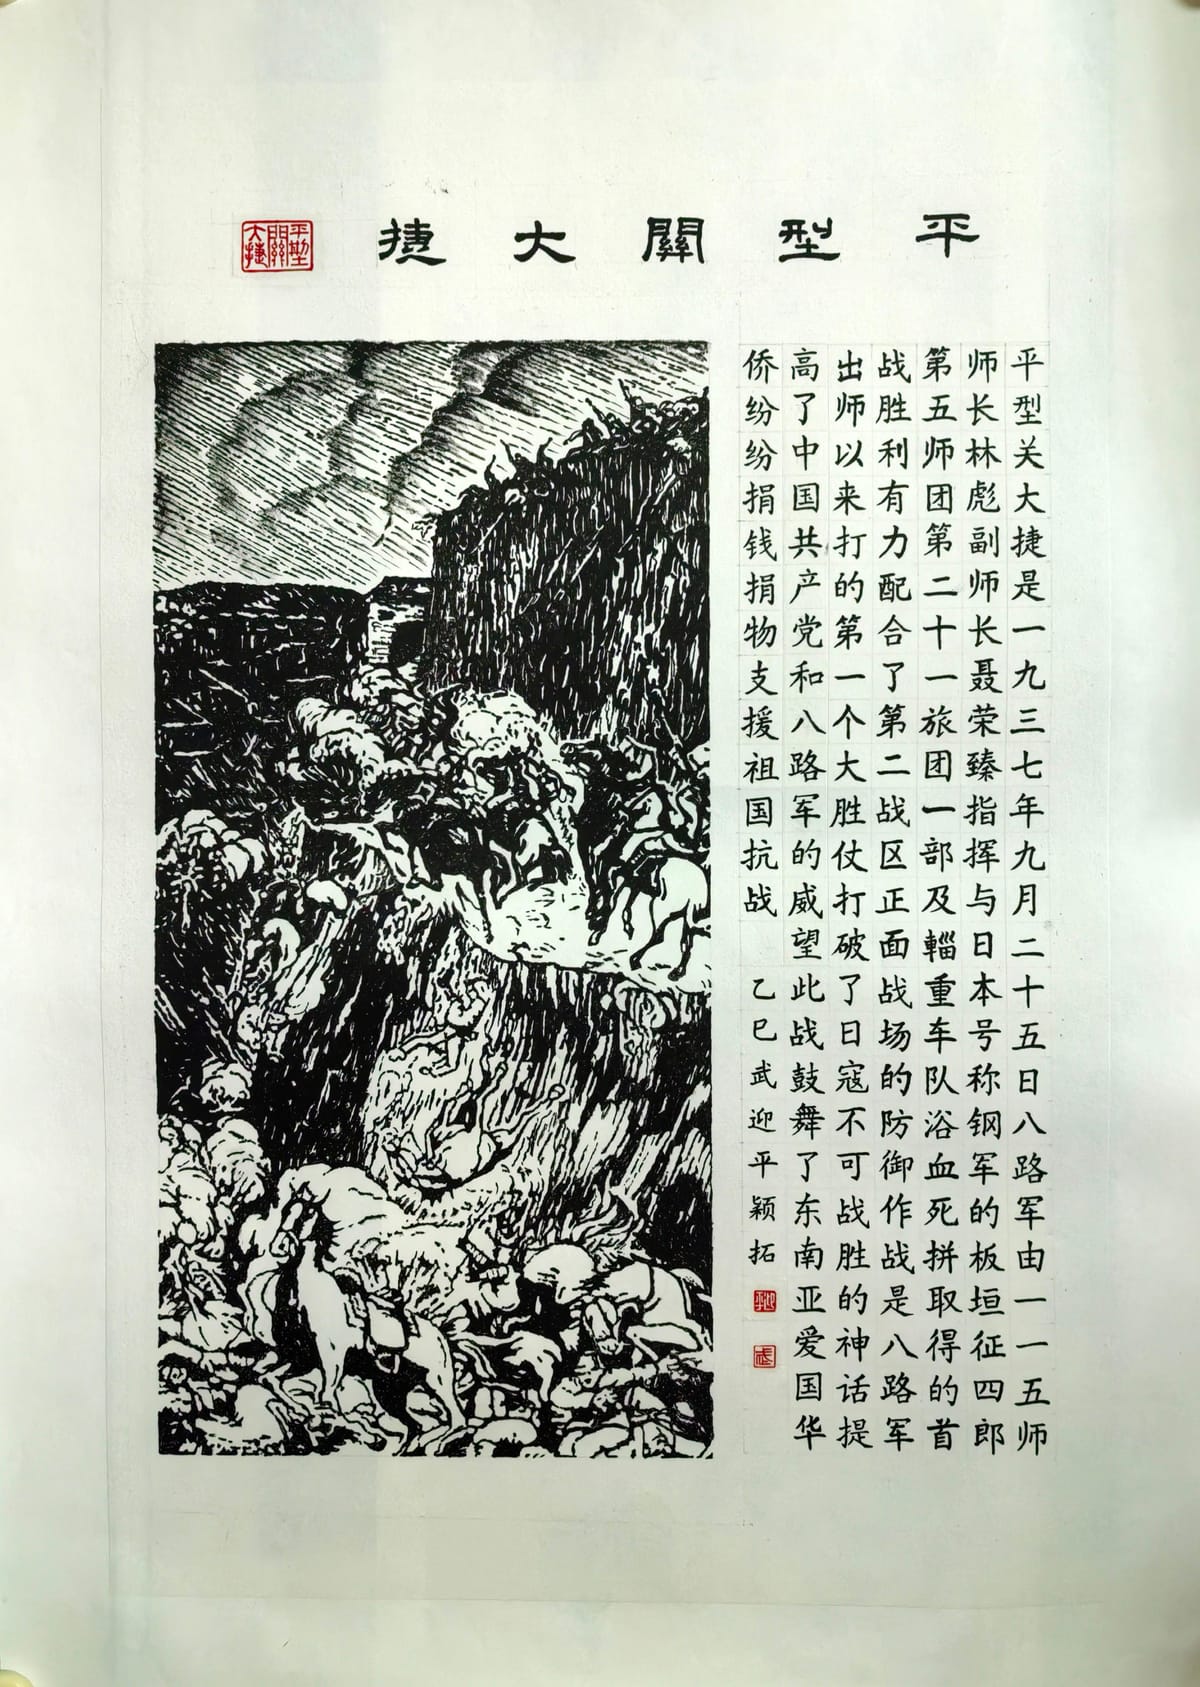 平型關大捷
平型關大捷
平型关大捷是一九三七年九月二十五日八路军由一一五师
师长林彪副师长聂荣臻指挥与日本号称钢军的板垣征四郎
第五师团第二十一旅团一部及輜重车队浴血死拼取得的首
战胜利有力配合了第二战区正面战场的防御作战是八路军
出师以来打的第一个大胜仗打破了日寇不可战胜的神话提
高了中国共产党和八路军的威望此战鼓舞了东南亚爱国华
侨纷纷捐钱捐物支援祖国抗战 乙巳武迎平颖拓
迎平
武